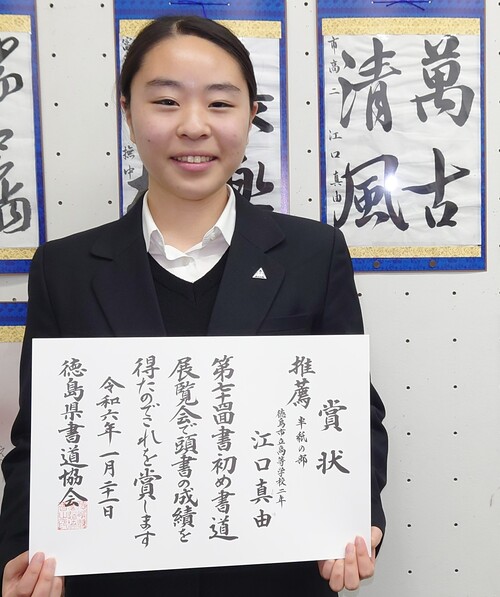 萬古
清風
市高二 江口真由
賞状
推薦 半紙の部
徳島市立高等学校二年
江口真由
第七十四回書初め書道
展覧会で頭書の成績を
得たのでこれを賞します
令和六年 一月二十一日
徳島県書道協会